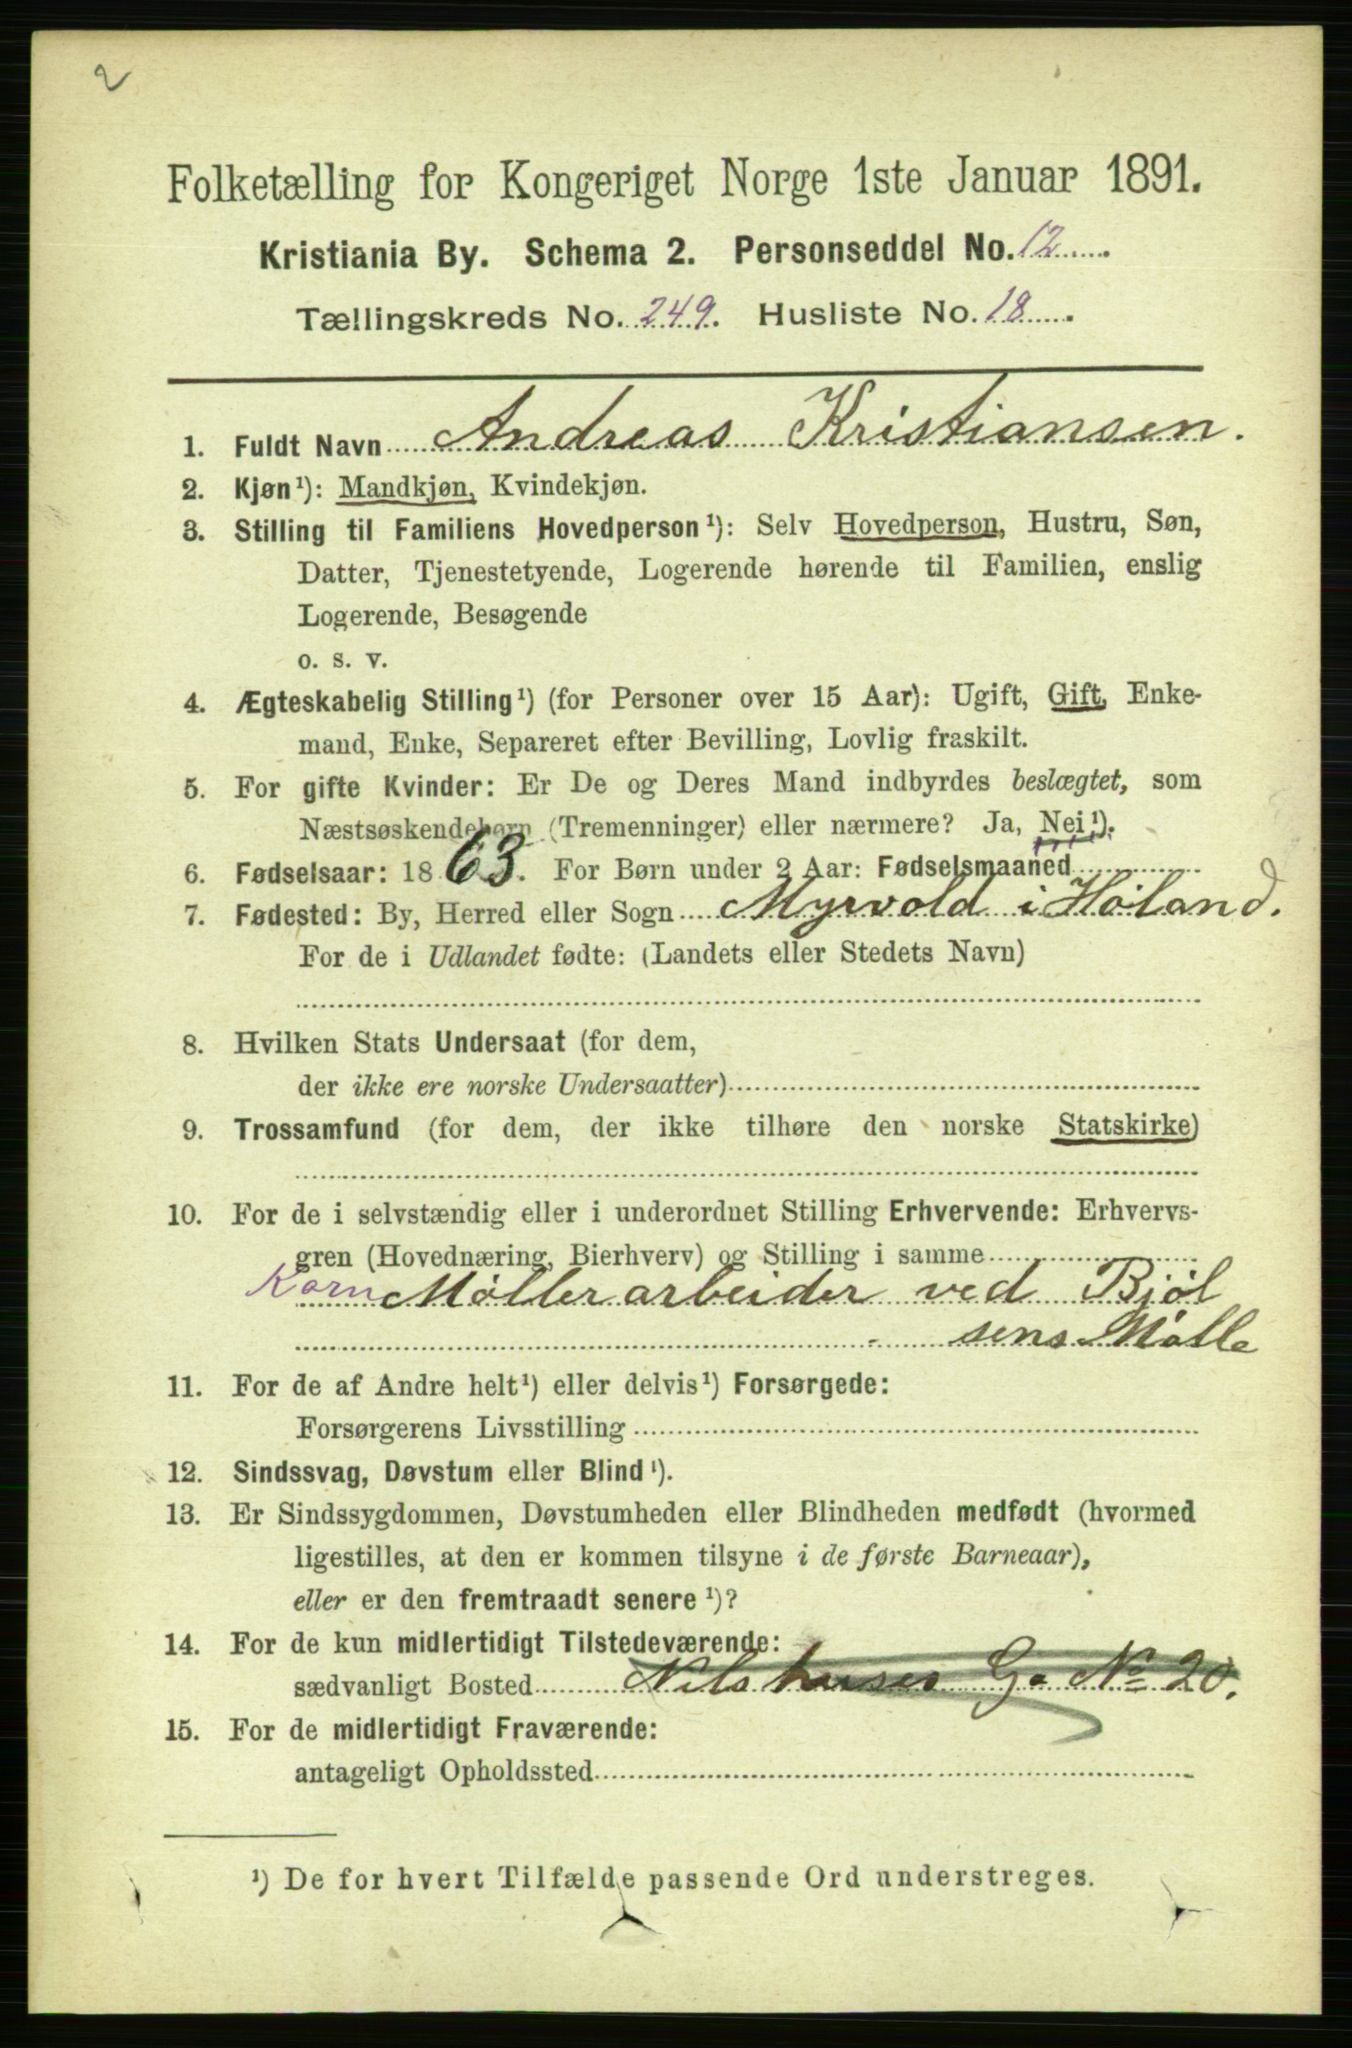 2
Folketælling for Kongeriget Norge 1ste Januar 1891.
Kristiania By. Schema 2. Personseddel No. 12
Tællingskreds No. 249. Husliste No. 18
1. Fuldt Navn Andreas Kristiansen.
2. Kjøn¹): Mandkjøn, Kvindekjøn.
3. Stilling til Familiens Hovedperson¹): Selv Hovedperson, Hustru, Søn,
Datter, Tjenestetyende, Logerende hørende til Familien, enslig
Logerende, Besøgende
o. s. v.
4. Ægteskabelig Stilling¹) (for Personer over 15 Aar): Ugift, Gift, Enke-
mand, Enke, Separeret efter Bevilling, Lovlig fraskilt.
5. For gifte Kvinder: Er De og Deres Mand indbyrdes beslægtet, som
Næstsøskendebørn (Tremenninger) eller nærmere? Ja, Nei¹).
6. Fødselsaar: 1863. For Børn under 2 Aar: Fødselsmaaned
7. Fødested: By, Herred eller Sogn Myrvold i Høland.
For de i Udlandet fødte: (Landets eller Stedets Navn)
8. Hvilken Stats Undersaat (for dem,
der ikke ere norske Undersaatter)
9. Trossamfund (for dem, der ikke tilhøre den norske Statskirke)
10. For de i selvstændig eller i underordnet Stilling Erhvervende: Erhvervs-
gren (Hovednæring, Bierhverv) og Stilling i samme
Korn Møllerarbeider ved Bjøl
sens Mølle
11. For de af Andre helt¹) eller delvis¹) Forsørgede:
Forsørgerens Livsstilling
12. Sindssvag, Døvstum eller Blind¹).
13. Er Sindssygdommen, Døvstumheden eller Blindheden medfødt (hvormed
ligestilles, at den er kommen tilsyne i de første Barneaar),
eller er den fremtraadt senere¹)?
14. For de kun midlertidigt Tilstedeværende:
sædvanligt Bosted Nils G. No 20.
15. For de midlertidigt Fraværende:
antageligt Opholdssted
¹) De for hvert Tilfælde passende Ord understreges.